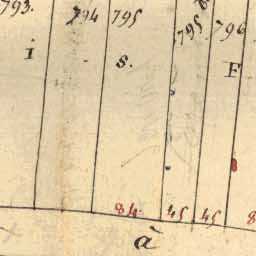 793. 794 795 795 796
i s. F
84. 45 45 8
à